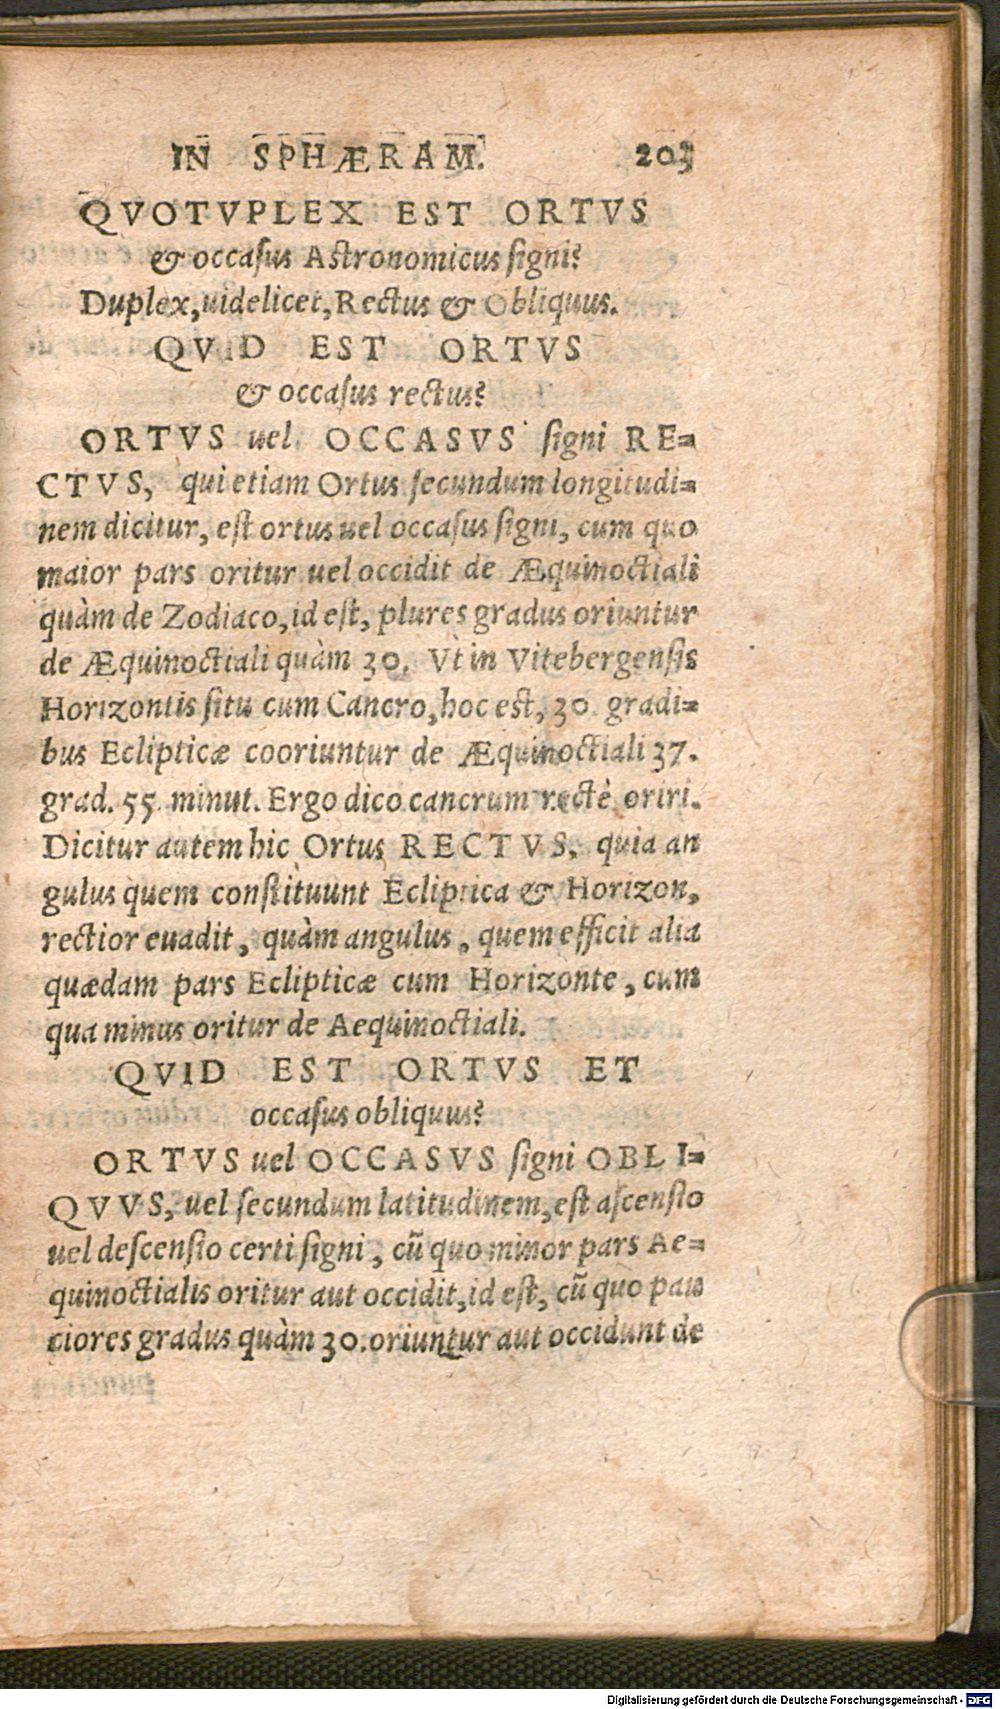 IN SPHÆRAM. 203
QVOTVPLEX EST ORTVS
& occasus Astronomicus signi?
Duplex, uidelicet, Rectus & Obliquus.
QVID EST ORTVS
& occasus rectus?
ORTVS uel OCCASVS signi RE=
CTVS, qui etiam Ortus secundum longitudi=
nem dicitur, est ortus uel occasus signi, cum quo
maior pars oritur uel occidit de Æquinoctiali
quàm de Zodiaco, id est, plures gradus oriuntur
de Æquinoctiali quàm 30. Vt in Vitebergensis
Horizontis situ cum Cancro, hoc est, 30 gradi=
bus Eclipticæ cooriuntur de Æquinoctiali 37.
grad. 55. minut. Ergo dico cancrum rectè oriri.
Dicitur autem hic Ortus RECTVS, quia an
gulus quem constituunt Ecliptica & Horizon,
rectior euadit, quàm angulus, quem efficit alia
quædam pars Eclipticæ cum Horizonte, cum
qua minus oritur de Aequinoctiali.
QVID EST ORTVS ET
occasus obliquus?
ORTVS uel OCCASVS signi OBLI=
QVVS, uel secundum latitudinem, est ascensio
uel descensio certi signi, cũ quo minor pars Ae=
quinoctialis oritur aut occidit, id est, cũ quo pau
ciores gradus quàm 30. oriuntur aut occidunt de
Digitalisierung gefördert durch die Deutsche Forschungsgemeinschaft - DFG